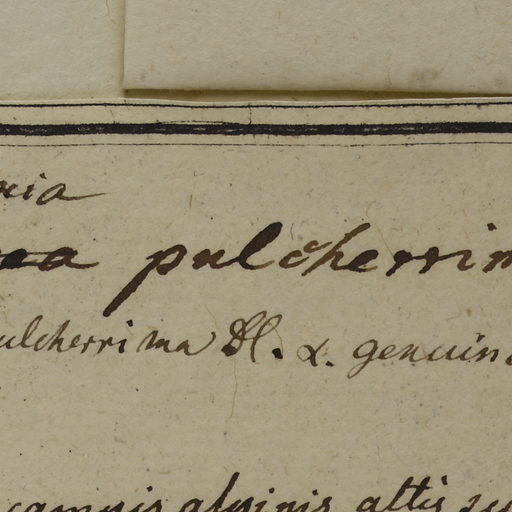 xia
ea pulcherrim
ulcherrima Hl. α. genuin
campis alpinis altis